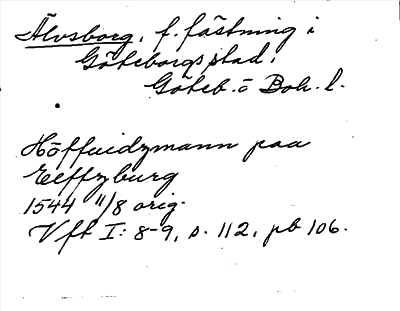 Älvsborg, f. fästning i
Göteborgs stad.
Göteb. o Boh. l.
Höffuidzmann paa
Elffzburg
1544 11/8 orig.
Vft I: 8-9, s. 112, pb 106.